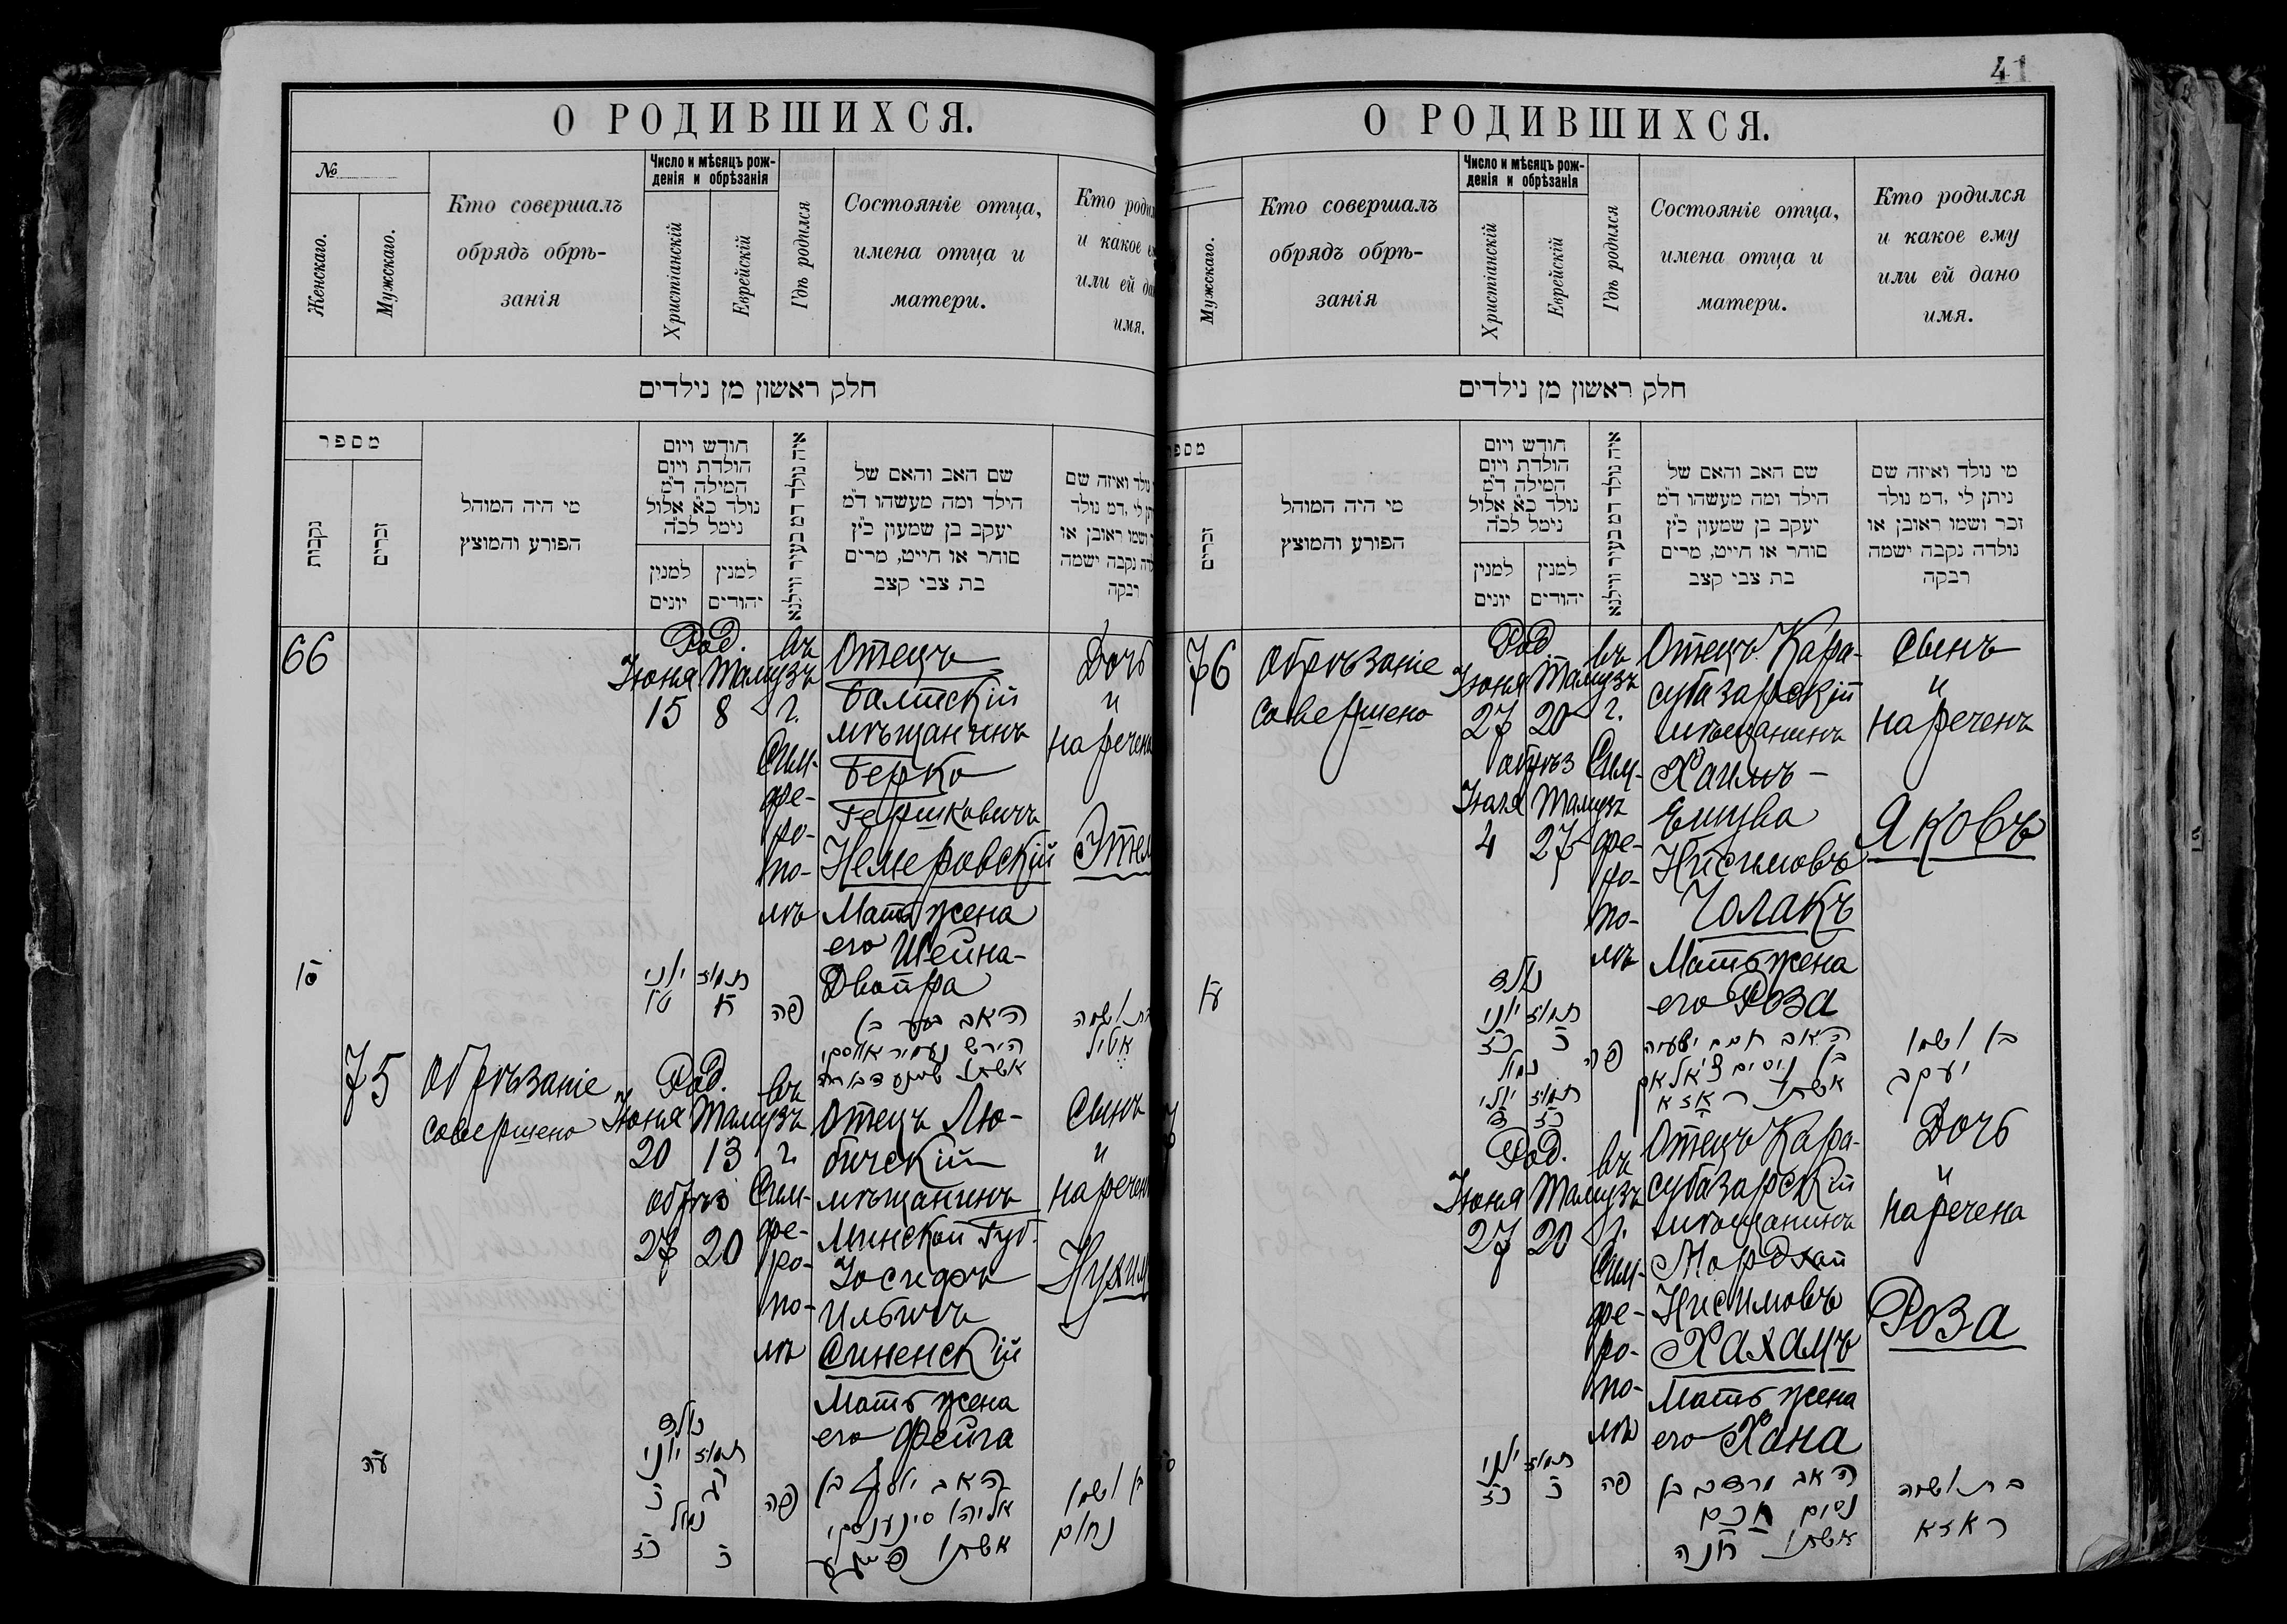 О РОДИВШИХСЯ.
№
Женскаго.
Мужскаго.
Кто совершалъ
обрядъ обрѣ-
занія
Число и мѣсяцъ рож-
денія и обрѣзанія
Христіанскій
Еврейскій
Гдѣ родился
Состояніе отца,
имена отца и
матери.
Кто
и какое
или ей
имя.
חלק ראשון מן נילדים
מספר
נקבות
זכרים
מי היה המוהל
הפורע והמוצץ
חודש ויום
הולדת ויום
המילה ד״מ
נולד כ״א אלול
נימל לכ״ה
למנין
יונים
למנין
יהודים
איה נולד דמ בעיר ווילנא
שם האב והאם של
הילד ומה מעשהו ד״מ
יעקב בן שמעון כ״ץ
סוחר או חייט, מרים
בת צבי קצב
נולד ואיזה שם
לי ,דמ נולד
ושמו ראובן או
נקבה ישמה
רבקה
66
Род.
Іюня Тамузъ
15 8
въ
г.
Сим-
фе-
ро-
по-
лѣ
Отецъ
Балтскій
мѣщанинъ
Берко
Гершковичъ
Немеровскій
Мать жена
его Шейна-
Двойра
Дочь
и
наречена
Этел
יוני תמוז
טו ח
פה
האב בער בן
הירש
אשתו
ושמה
אטיל
75
Обрѣзаніе
совершено
Род.
Іюня Тамузъ
20 13
обрѣз
27 20
въ
г.
Сим-
фе-
ро-
по-
лѣ
Отецъ Лю-
бичскій
мѣщанинъ
Минской губ.
Іосифъ
Ильичъ
Синенскій
Мать жена
его Фейга
Сынъ
и
наречен
Нухим
עה
נולד
יוני תמוז
כ יג
נמול
כז כ
פה
האב יוסף בן
אליהו סינענסקי
אשתו פייגע
בן ושמו
נחום
41
О РОДИВШИХСЯ.
Мужскаго.
Кто совершалъ
обрядъ обрѣ-
занія
Число и мѣсяцъ рож-
денія и обрѣзанія
Христіанскій
Еврейскій
Гдѣ родился
Состояніе отца,
имена отца и
матери.
Кто родился
и какое ему
или ей дано
имя.
חלק ראשון מן נילדים
זכרים
מי היה המוהל
הפורע והמוצץ
חודש ויום
הולדת ויום
המילה ד״מ
נולד כ״א אלול
נימל לכ״ה
למנין
יונים
למנין
יהודים
איה נולד דמ בעיר ווילנא
שם האב והאם של
הילד ומה מעשהו ד״מ
יעקב בן שמעון כ״ץ
סוחר או חייט, מרים
בת צבי קצב
מי נולד ואיזה שם
ניתן לי ,דמ נולד
זכר ושמו ראובן או
נולדה נקבה ישמה
רבקה
76
Обрѣзаніе
совершено
Род.
Іюня Тамузъ
27 20
обрѣз
Іюля Тамузъ
4 27
въ
г.
Сим-
фе-
ро-
по-
лѣ
Отецъ Кара-
субазарскій
мѣщанинъ
Хаимъ-
Ешува
Нисимовъ
Чолакъ
Мать жена
его Роза
Сынъ
и
нареченъ
Яковъ
נולד
יוני תמוז
כז כ
נמול
יולי תמוז
ד כז
פה
האב חיים ישעיה
בן ניסים צ׳אלאק
אשתו ראזא
בן ושמו
יעקב
Род.
Іюня Тамузъ
27 20
въ
г.
Сим-
фе-
ро-
по-
лѣ
Отецъ Кара-
субазарскій
мѣщанинъ
Мордхай
Нисимовъ
Хахамъ
Мать жена
его Хана
Дочь
и
наречена
Роза
יוני תמוז
כז כ
פה
האב מרדכי בן
נסים חכם
אשתו חנה
בת ושמה
ראזא